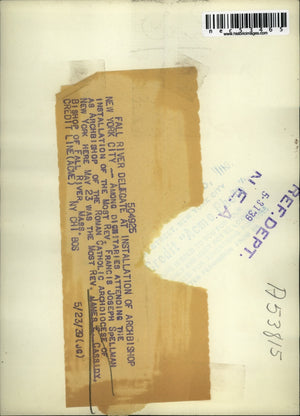 www.historicimages.com
504925
FALL RIVER DELEGATE AT INSTALLATION OF ARCHBISHOP
NEW YORK CITY -- AMONG DIGNITARIES ATTENDING THE
INSTALLATION OF THE MOST REV. FRANCIS JOSEPH SPELLMAN
AS ARCHBISHOP OF THE ROMAN CATHOLIC ARCHDIOCESE OF
NEW YORK HERE MAY 23 WAS THE MOST REV. JAMES E. CASSIDY,
BISHOP OF FALL RIVER, MASS.
CREDIT LINE (ACME) NY CHI BOS
5/23/39 (JG)
REF. DEPT.
5-31-39
N. E. A.
A53815